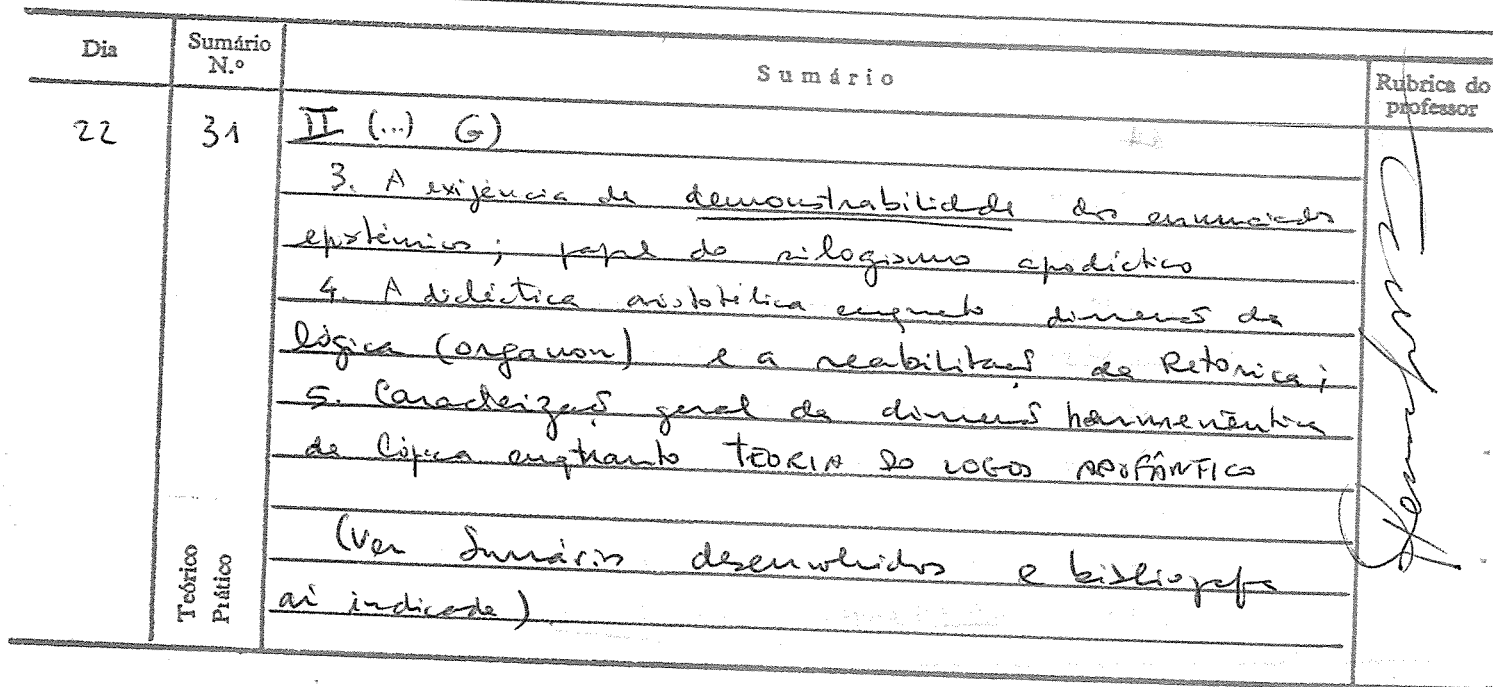 Dia
Sumário N.º
Sumário
Rubrica do professor
22
31
II (...) G)
3. A exigência de demonstrabilidade dos enunciados
epistémicos; papel do silogismo apodíctico
4. A dialéctica aristotélica enquanto dimensão da
lógica (organon) e a reabilitação da Retórica;
5. Caracterização geral da dimensão hermenêutica
da Lógica enquanto TEORIA DO LOGOS APOFÂNTICO
(Ver Sumários desenvolvidos e bibliografia
aí indicada)
Teórico
Prático